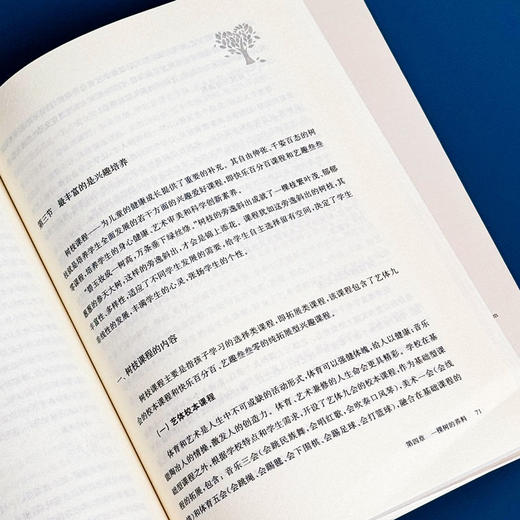 第三节 最丰富的是兴趣培养
树枝课程——为儿童的健康成长提供了重要的补充。其自由伸张、千姿百态的树
枝就是培养学生全面发展的若干方面的兴趣爱好课程，即快乐百分百课程和艺趣叁叁
零课程，培养学生的身心健康、艺术审美和科学创新素养。
“碧玉妆成一树高，万条垂下绿丝绦。”树枝的旁逸斜出成就了一棵枝繁叶茂、郁郁
葱葱的参天大树，这样的旁逸斜出，才会是锦上添花。课程犹如这旁逸斜出的树枝，其
丰富性、多样性，适应了不同学生发展的需要，给学生自主选择留有空间，决定了学生
非线性的发展，丰满学生的心灵，张扬学生的个性。
一、树枝课程的内容
树枝课程主要是指孩子学习的选择类课程，即拓展类课程，该课程包含了艺体九
会的校本课程和快乐百分百、艺趣叁叁零的纯拓展型兴趣课程。
（一）艺体校本课程
体育和艺术是人生中不可或缺的活动形式，体育可以强健体魄，给人以健康；音乐
能陶冶人的情操，激发人的创造力。体育、艺术兼修的人生命会更具精彩。学校在基
础型课程之外，根据学校特点和学生需求，开设了艺体九会的校本课程，作为基础型课
程的拓展，包含：音乐三会（会跳民族舞、会唱红歌、会吹靠口风琴）、美术一会（会线
描）和体育五会（会跳绳、会踢毽、会下围棋、会踢足球、会打篮球），融合在基础课程的
第四章 一棵树的养料 71